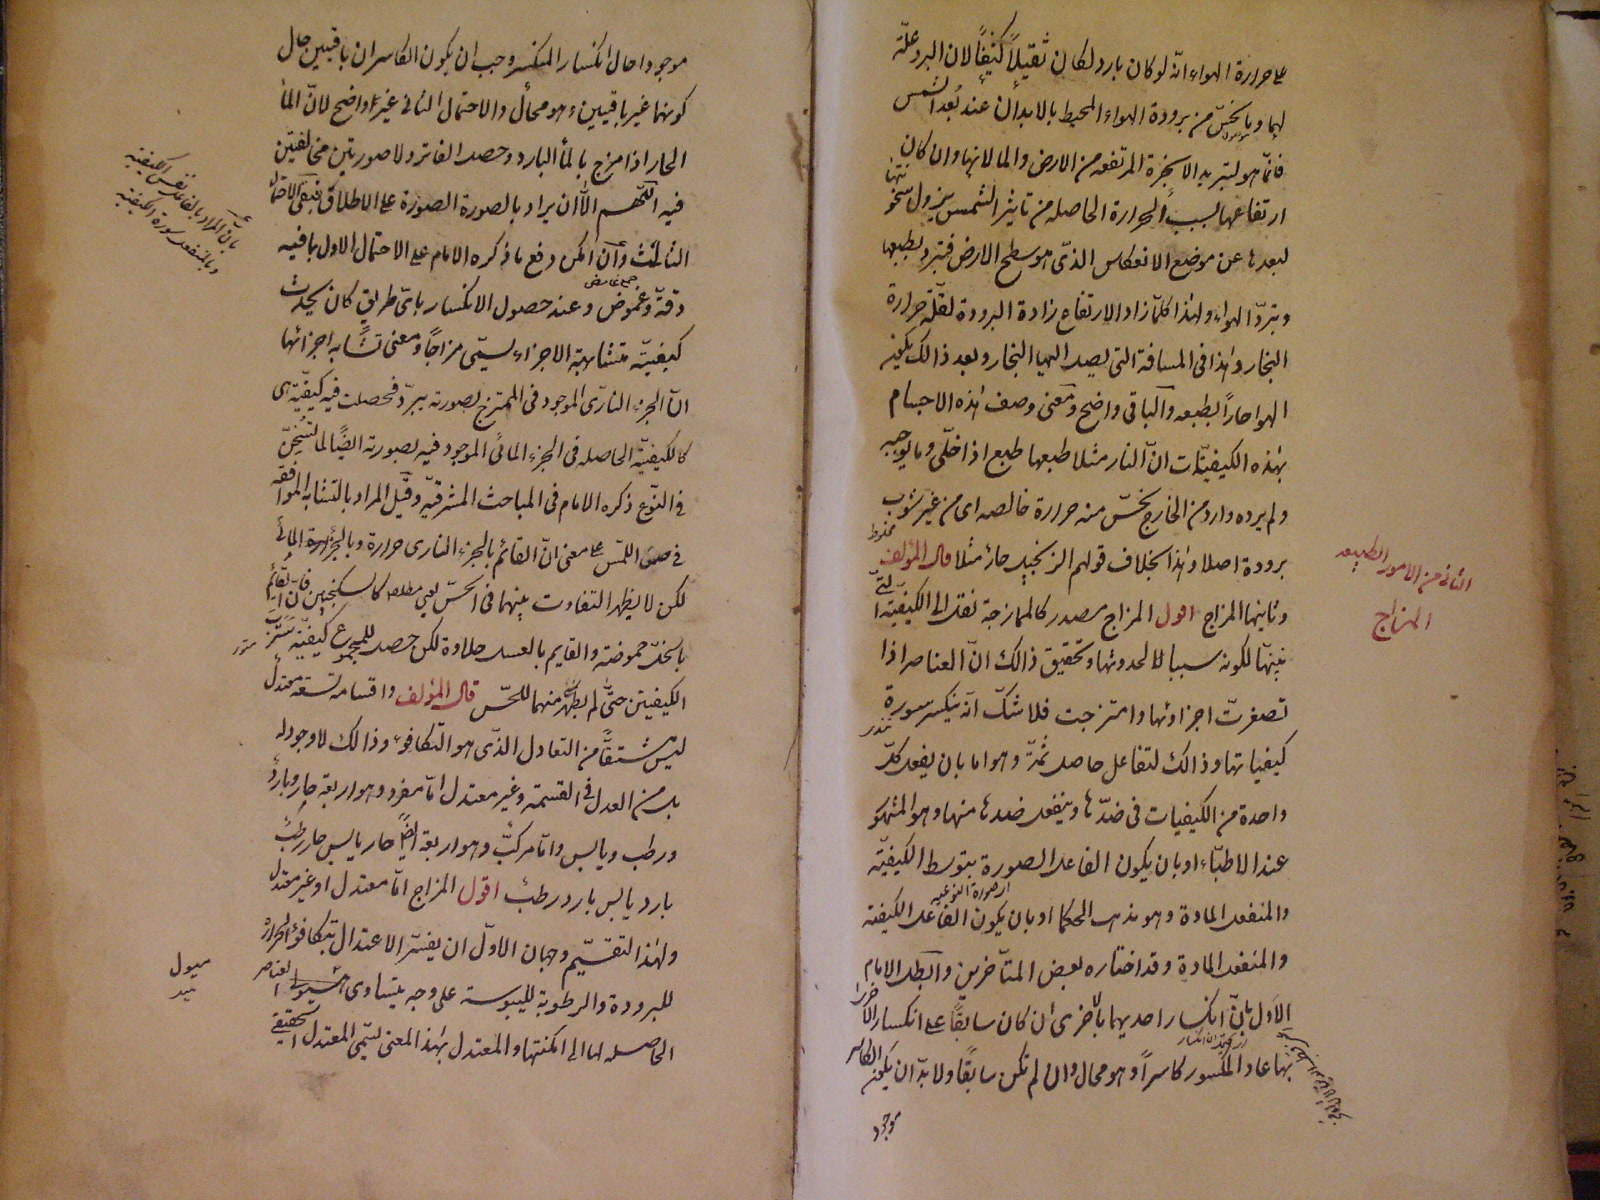 على حرارة الهواء انّه لو كان بارد لكان ثقيلاً كثيفاً لان البرد علّة
لهما وما يحسّ من برودة الهواء المحيط بالابدان عند بُعد الشمس
فانّما هو لتبريد الابخرة المرتفعه من الارض والماء لانها وان كان
ارتفاعها بسبب الحرارة الحاصله من تاثير الشمس يزول سخونتها
لبعدها عن موضع الانعكاس الذى هو سطح الارض فتبرد بطبعها
وتبرّد الهواء ولهذا كلّما زاد الارتفاع زادة البرودة لقلّة حرارة
البخار وهذا فى المسافة التى يصل اليها البخار وبعد ذالك يكون
الهوا حاراً بطبعه والباقى واضح ومعنى وصف هذه الاجسام
بهذه الكيفيّات انّ النار مثلا طبعها طبع اذا خلّى وما يوجبه
ولم يرده وارد من الخارج يحسّ منه حرارة خالصه اى من غير شوب
برودة اصلا وهذا بخلاف قولهم الزنجبيل حارّ مثلا قال المؤلف
الثانى من الامور الطبيعه
المزاج
وثانيها المزاج اقول المزاج مصدر كالممازجة نقل الى الكيفيّة التى
لكونه سببا لحدوثها وتحقيق ذالك انّ العناصر اذا
تصغرت اجزاؤها وامتزجت فلا شكّ انّه ينكسر سورة
كيفياتها وذالك لتفاعل حاصل ثمّة وهو اما بان يفعل كلّ
واحدة من الكيفيات فى ضدّها وينفعل ضدها منها وهو المشهور
عند الاطبّاء او بان يكون الفاعل الصورة بتوسط الكيفيّة
والمنفعل المادة وهو مذهب الحكما او بان يكون الفاعل الكيفية
والمنفعل المادة وقد اختاره بعض المتأخرين وابطل الامام
الاول بانّ انكسار احديهما بالاخرى ان كان سابقاً على انكسار الاخرى
بها عاد المكسور كاسراً وهو محال وان لم تكن سابقا ولا بدّ ان يكون الكاسر
موجود
موجودا حال انكسار المنكسر وجب ان يكون الكاسران باقيين حال
كونهما غير باقيين وهو محال والاحتمال الثانى غير واضح لانّ الماء
الحار اذا مزج بالماء البارد وحصل الفاتر ولا صورتين مخالفتين
فيه اللّهم الّا ان يراد بالصورة الصورة على الاطلاق فبقى الاحتمال
الثالث وان امكن دفع ما ذكره الامام على الاحتمال الاول بما فيه
دقة وغموض وعند حصول الانكسار باىّ طريق كان يحدث
كيفيّة متشابهة الاجزاء يسمّى مزاجاً ومعنى تشابه اجزائها
انّ الجزء النارى الموجود فى الممتزج بصورته يبرد فحصلت فيه كيفيّة هى
كالكيفيّة الحاصله فى الجزء المائى الموجود فيه بصورته ايضاً لما تسخّن
فى النوع ذكره الامام فى المباحث المشرقيّه وقيل المراد بالتشابه الموافقه
فى حسّ اللمس على معنى انّ القائم بالجزء النارى حرارة وبالجزء المائى
لكن لا يظهر التفاوت بينهما فى الحسّ كالسكنجبين فانّ القائم
بالخلّ حموضة والقايم بالعسل حلاوة لكن حصل للمجموع كيفيّة
الكيفيتين حتّى لم يظهر منهما للحسّ قال المؤلف واقسامه تسعة معتدل
ليس مشتقّاً من التعادل الذى هو التكافوء وذالك لا وجود له
بل من العدل فى القسمة وغير معتدل امّا مفرد وهو اربعة حار وبارد
ورطب ويابس وامّا مركّب وهو اربعة ايضاً حار يابس حار رطب
بارد يابس بارد رطب اقول المزاج امّا معتدل او غير معتدل
ولهذا التقسّيم وجهان الاوّل ان يفسّر الاعتدال بتكافؤ الحرارة
للبرودة والرطوبة لليبوسة على وجه يتساوى ميول العناصر
ميول
الحاصله لها الى امكنتها والمعتدل بهذا المعنى يسمّى المعتدل الحقيقى